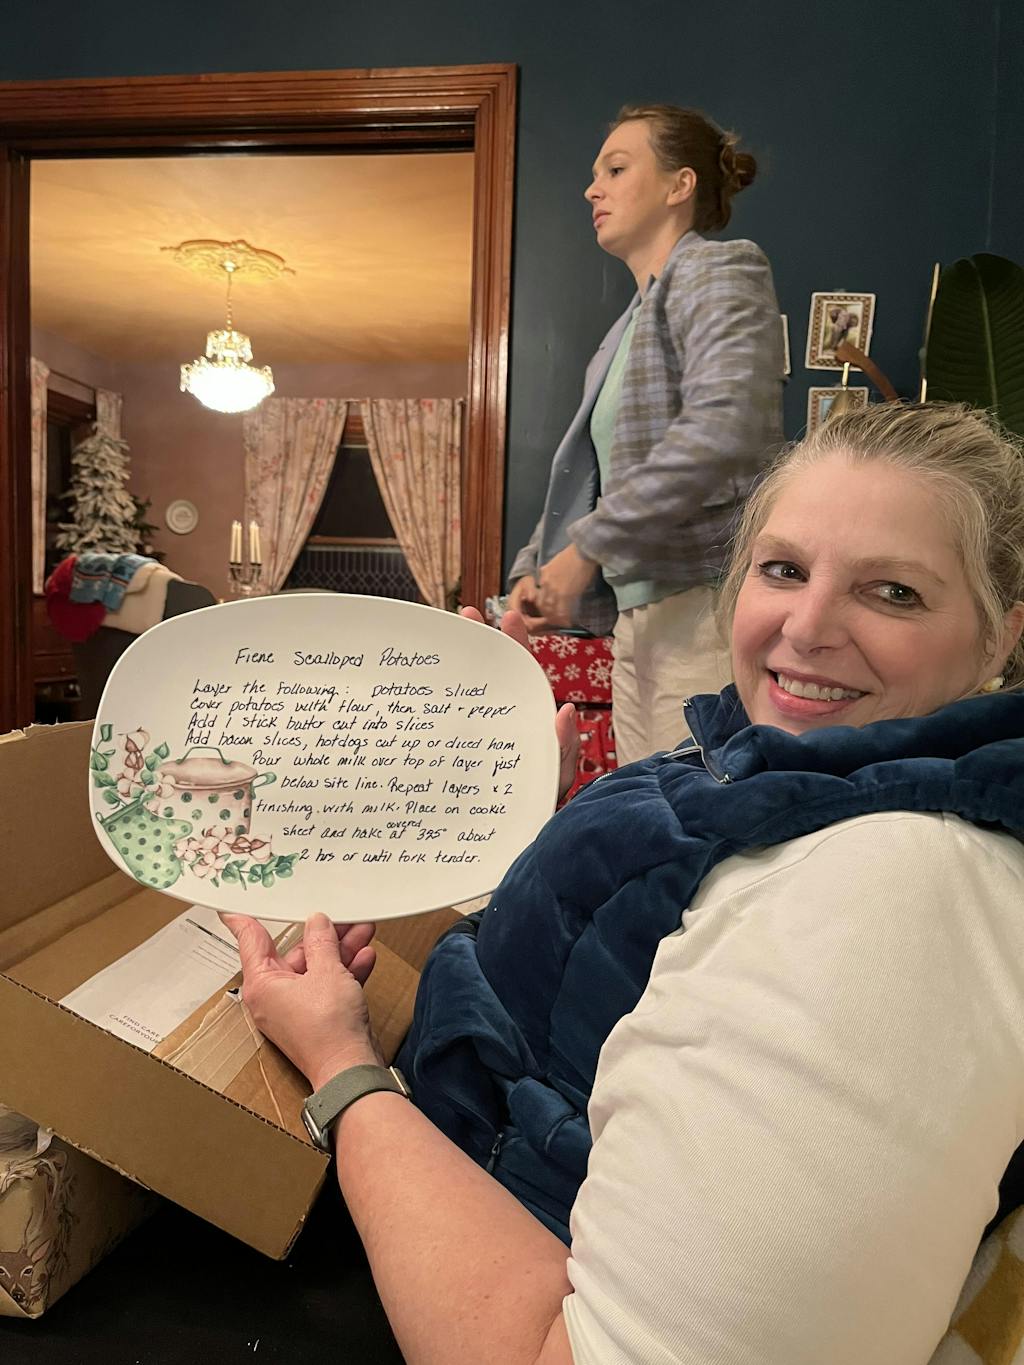 Fiene Scalloped Potatoes
Layer the following: potatoes sliced
Cover potatoes with flour, then salt + pepper
Add 1 stick butter cut into slices
Add bacon slices, hotdogs cut up or diced ham
Pour whole milk over top of layer just
below site line. Repeat layers x 2
finishing with milk. Place on cookie
sheet and bake covered at 325° about
2 hrs or until fork tender.
FIND CARE